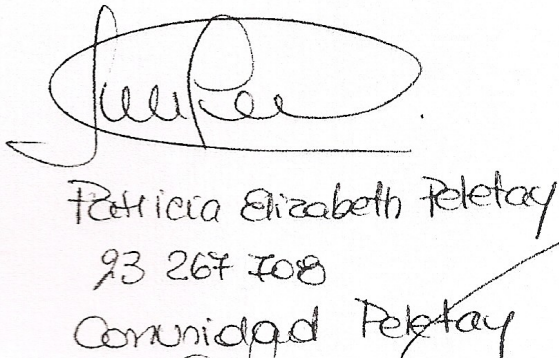 Patricia Elizabeth Peletay
23 267 708
Comunidad Peletay